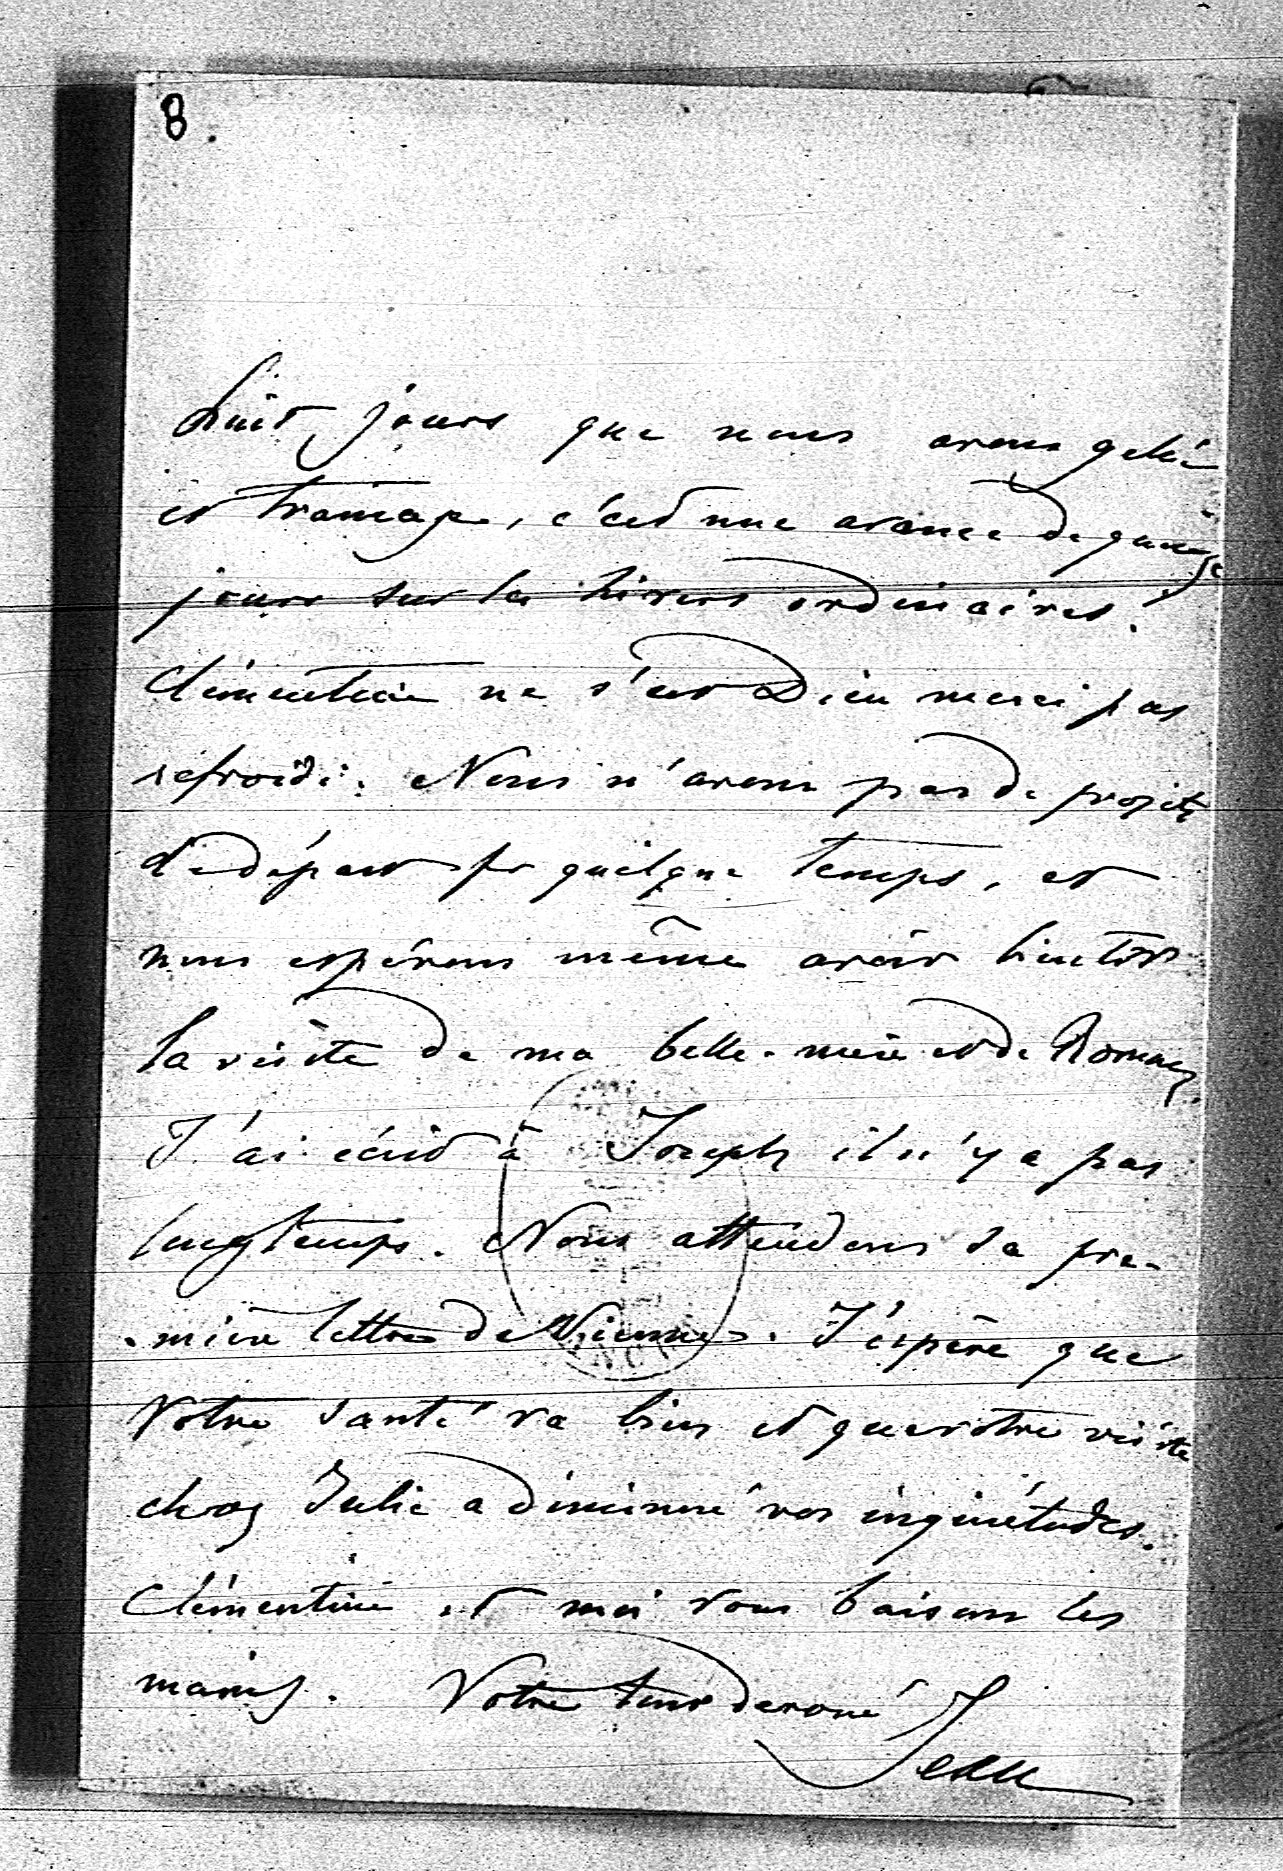 8.
huit jours que nous avons gelée
et trainage, c'est une avance de quinze
jours sur les hivers ordinaires.
Clémentine ne s'est Dieu merci pas
refroidi. Nous n'avons pas de projets
de départ pr quelque temps, et
nous espérons même avoir bientôt
la visite de ma belle-mère et de Roman.
J'ai écrit à Joseph il n'y a pas
longtemps. Nous attendons sa pre-
-mière lettre de Vienne. J'espère que
votre santé va bien et que votre visite
chez Julie a diminué vos inquiétudes.
Clémentine et moi vous baisons les
mains. Votre tout devoué
Jean